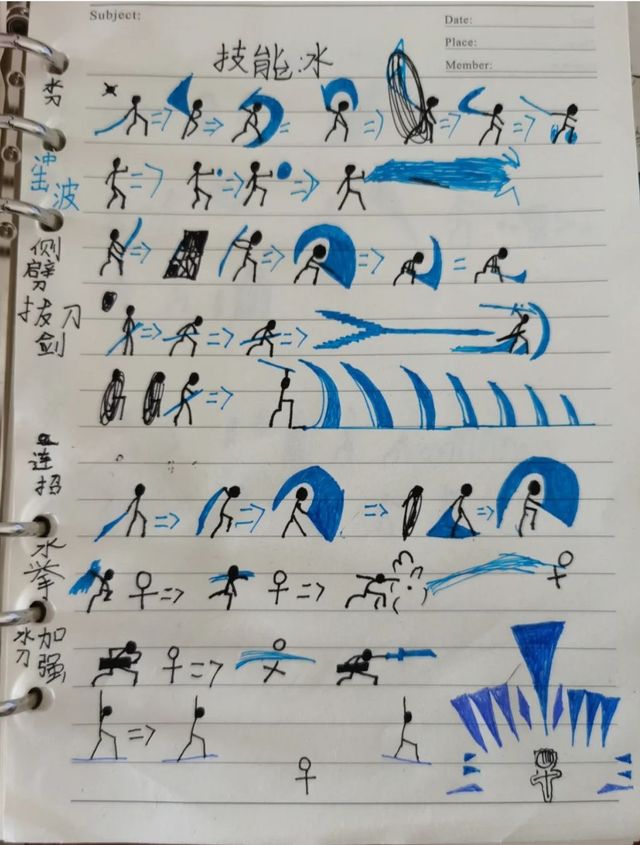 Subject:
Date:
Place:
Member:
技能:水
冲击波
侧劈
拔刀剑
连招
水举
水刀加强